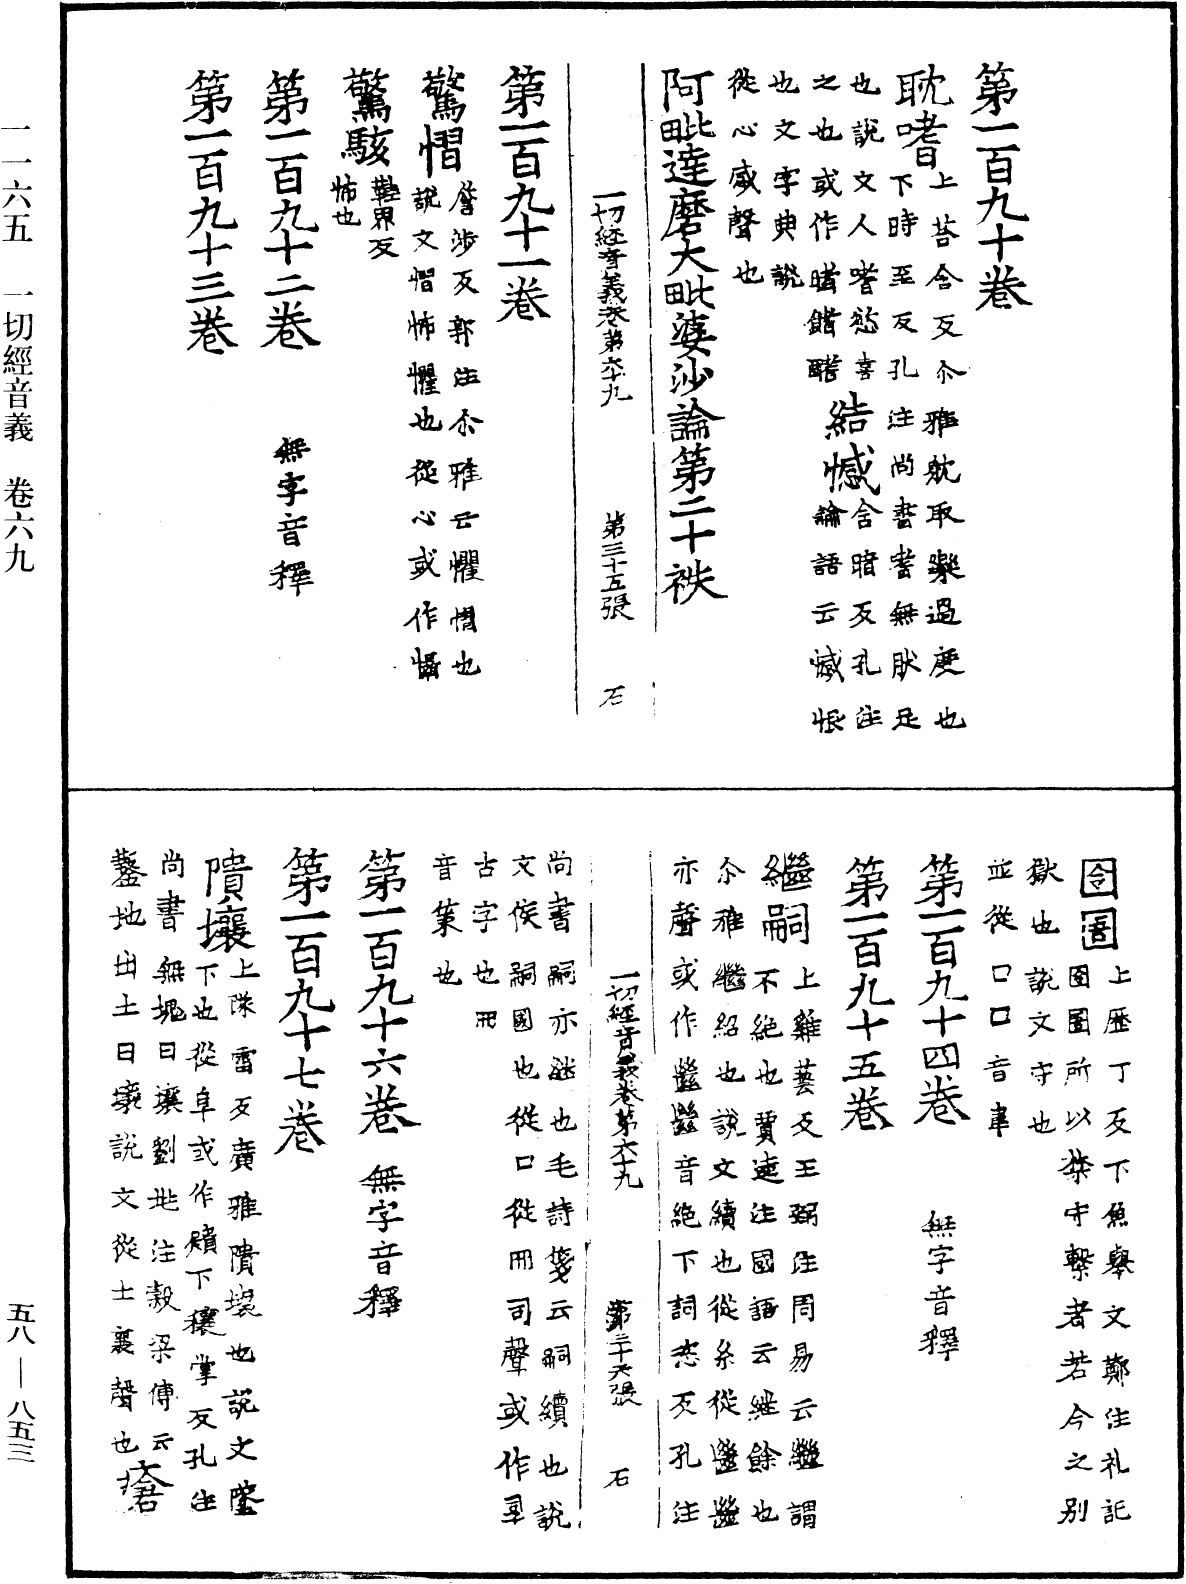 第一百九十卷
耽嗜上荅含反尒雅躭取樂過度也
下時至反孔注尚書耆無猒足
也說文人嗜慾喜
之也或作𦞯𩝙醋
結憾含暗反孔注
論語云憾恨
也文字典說
從心感聲也
阿毗達磨大毗婆沙論第二十袟
一切經音義卷第六十九 第三十五張 石
第一百九十一卷
驚慴詹涉反郭注尒雅云懼慴也
說文慴怖懼也從心或作懾
驚駭鞋界反
怖也
第一百九十二卷
第一百九十三卷 無字音釋
囹圄上歷丁反下魚舉文鄭注礼記
囹圄所以禁守繫者若今之别
獄也說文守也
並從囗囗音韋
第一百九十四卷 無字音釋
第一百九十五卷
繼嗣上雞藝反王弼注周易云繼謂
不絕也賈逵注國語云繼餘也
尒雅繼紹也說文續也從糸從㡭㡭
亦聲或作㡭㡭音絕下詞恣反孔注
一切經音義卷第六十九 第三十六張 石
尚書嗣亦継也毛詩箋云嗣續也說
文侯嗣國也從口從冊司聲或作𤔲
古字也冊
音策也
第一百九十六卷 無字音釋
第一百九十七卷
隤壤上隊雷反廣雅隤壞也說文墜
下也從阜或作䫋下穰掌反孔注
尚書無塊曰壤劉兆注榖梁傳云
鑿地出土曰壤說文從土襄聲也
瘡
一一六五 一切經音義 卷六九
五八—八五三